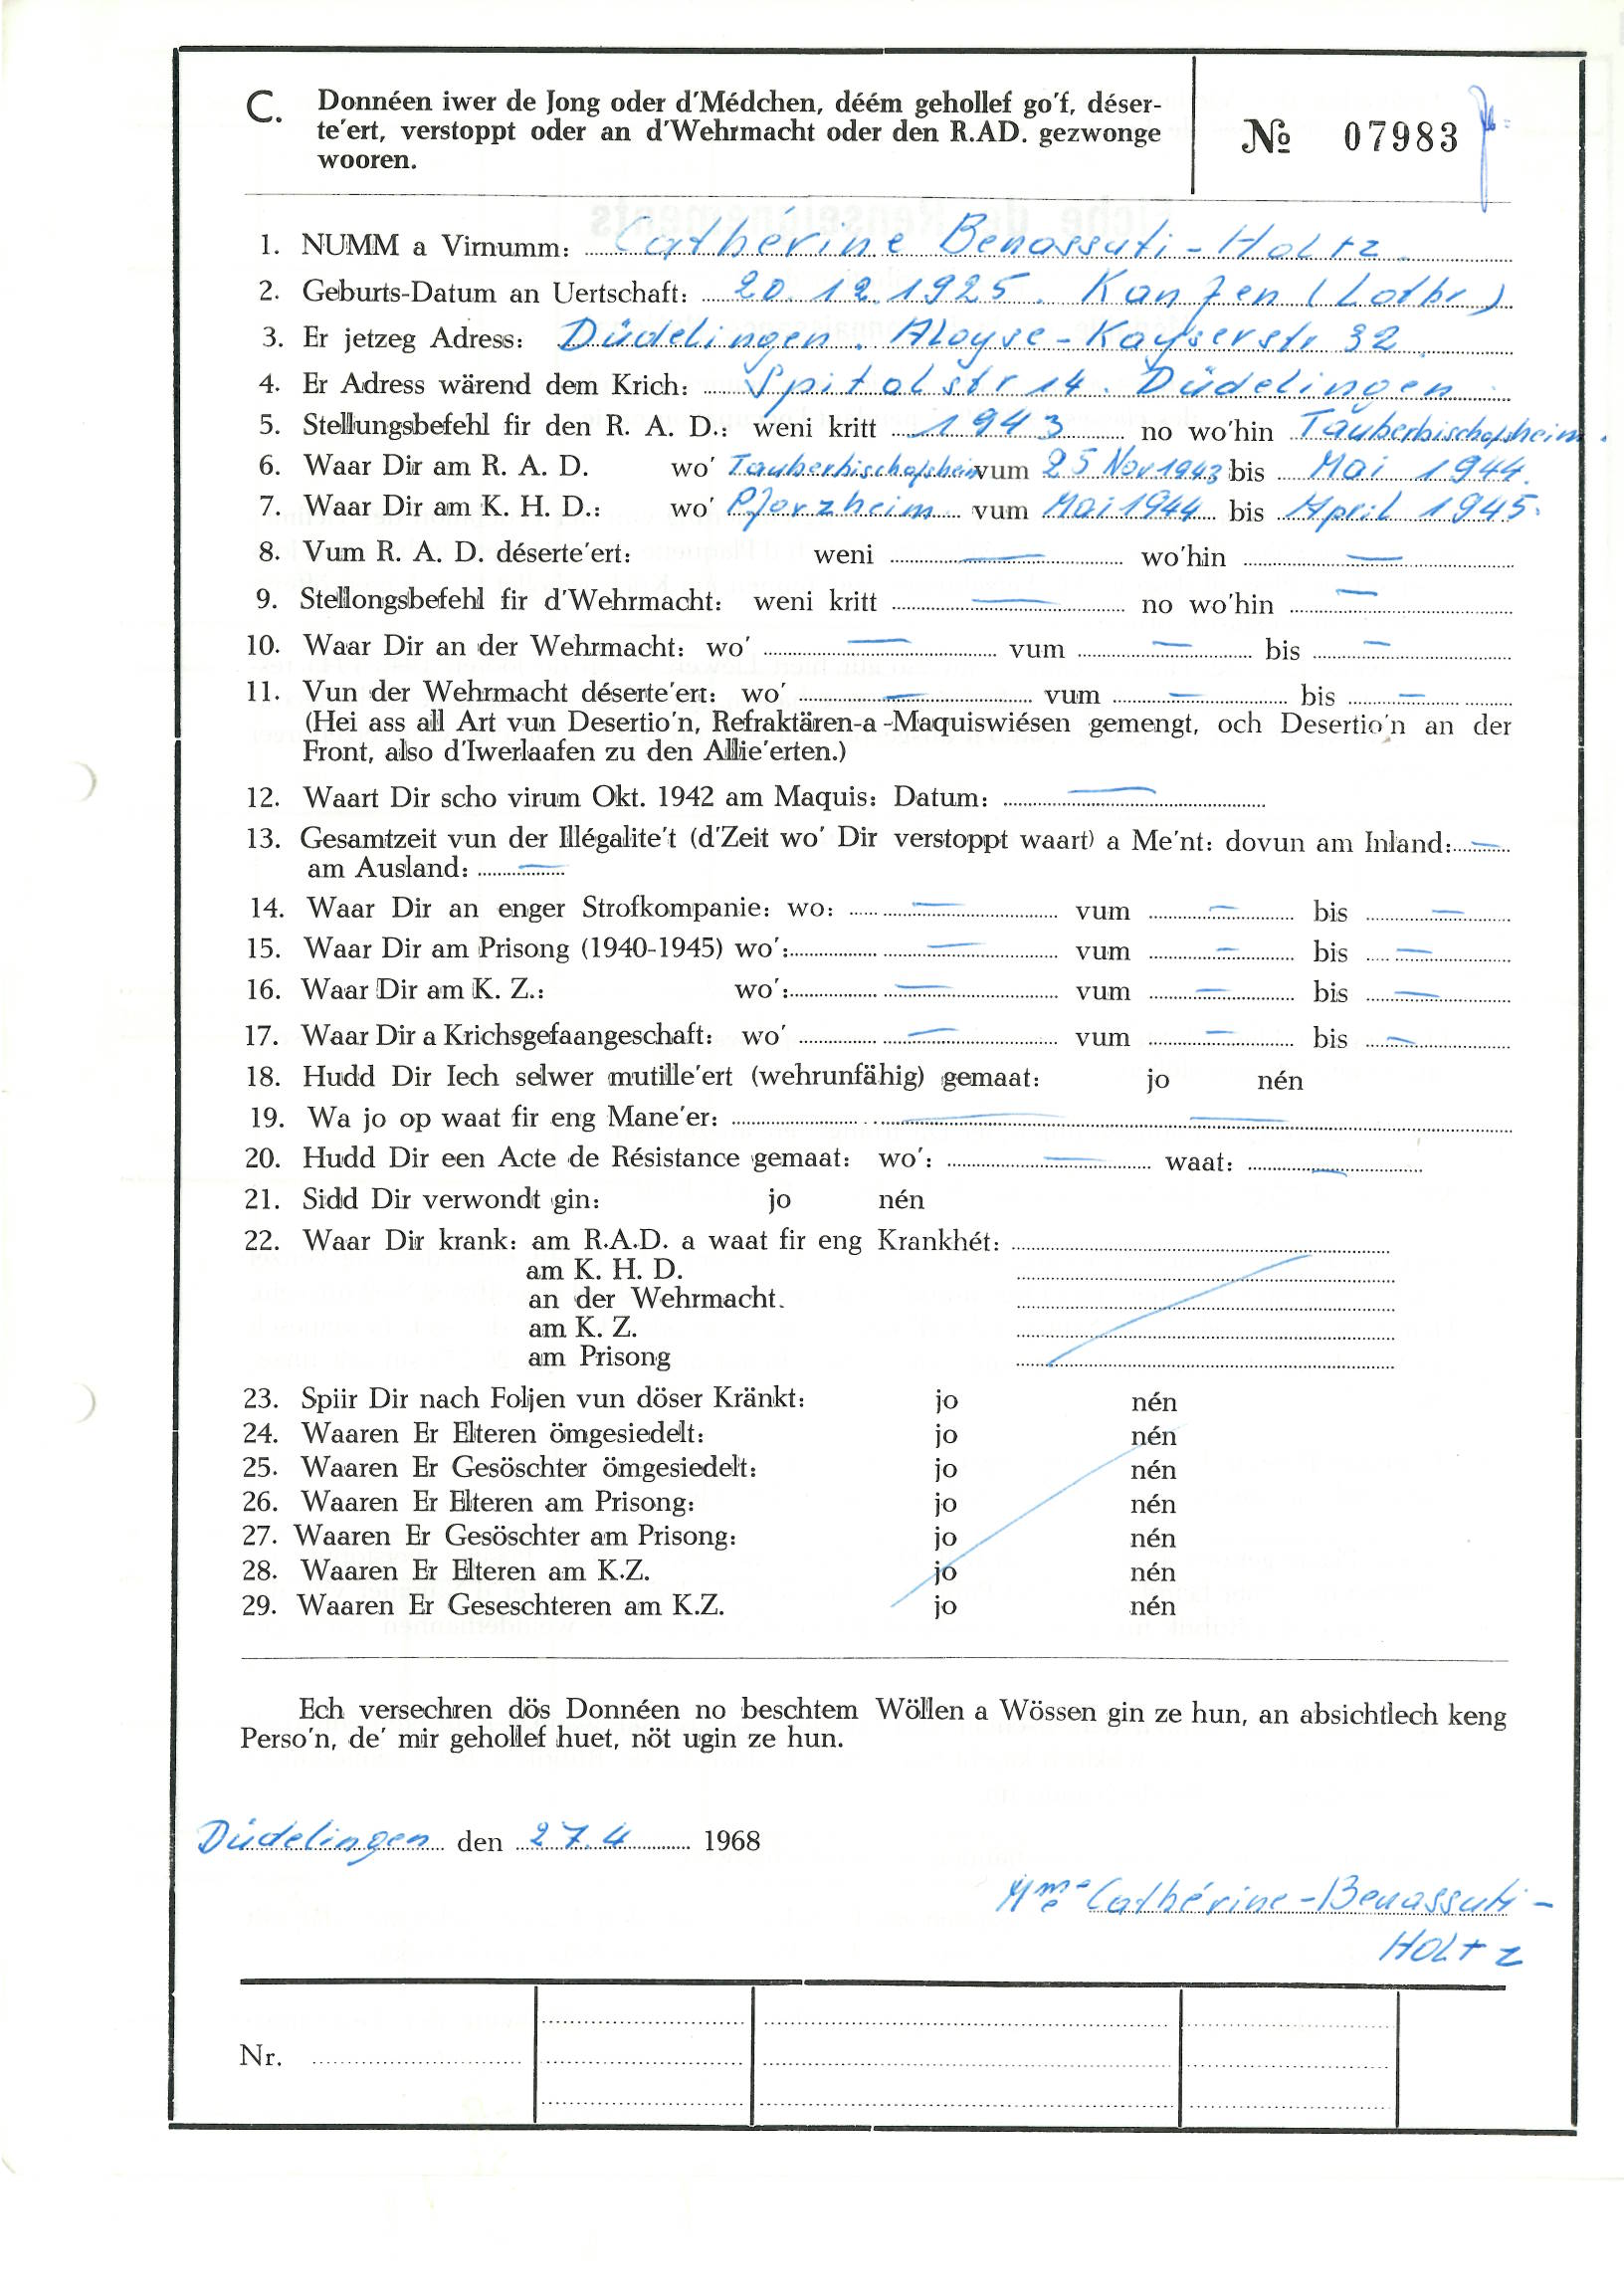 C. Donnéen iwer de Jong oder d'Médchen, déém gehollef go'f, déser-
te'ert, verstoppt oder an d'Wehrmacht oder den R.AD. gezwonge
wooren.
No 07983
1. NUMM a Virnumm: Cathérine Benassuti-Holtz
2. Geburts-Datum an Uertschaft: 20.12.1925. Kanfen (Lothr)
3. Er jetzeg Adress: Düdelingen. Aloyse-Kayserstr 32
4. Er Adress wärend dem Krich: Spitalstr 14. Düdelingen
5. Stellungsbefehl fir den R. A. D.: weni kritt 1943 no wo'hin Tauberbischofsheim.
6. Waar Dir am R. A. D. wo' Tauberbischofsheim vum 25 Nov 1943 bis Mai 1944.
7. Waar Dir am K. H. D.: wo' Pforzheim vum Mai 1944 bis April 1945.
8. Vum R. A. D. déserte'ert: weni — wo'hin —
9. Stellongsbefehl fir d'Wehrmacht: weni kritt — no wo'hin —
10. Waar Dir an der Wehrmacht: wo' — vum — bis —
11. Vun der Wehrmacht déserte'ert: wo' — vum — bis —
(Hei ass all Art vun Desertio'n, Refraktären-a-Maquiswiésen gemengt, och Desertio'n an der
Front, also d'Iwerlaafen zu den Allie'erten.)
12. Waart Dir scho virum Okt. 1942 am Maquis: Datum: —
13. Gesamtzeit vun der Illégalite't (d'Zeit wo' Dir verstoppt waart) a Me'nt: dovun am Inland: —
am Ausland: —
14. Waar Dir an enger Strofkompanie: wo: — vum — bis —
15. Waar Dir am Prisong (1940-1945) wo': — vum — bis —
16. Waar Dir am K. Z.: wo': — vum — bis —
17. Waar Dir a Krichsgefaangeschaft: wo' — vum — bis —
18. Hudd Dir Iech selwer mutille'ert (wehrunfähig) gemaat: jo nén
19. Wa jo op waat fir eng Mane'er: — —
20. Hudd Dir een Acte de Résistance gemaat: wo': — waat: —
21. Sidd Dir verwondt gin: jo nén
22. Waar Dir krank: am R.A.D. a waat fir eng Krankhét:
am K. H. D.
an der Wehrmacht.
am K. Z.
am Prisong
23. Spiir Dir nach Foljen vun döser Kränkt: jo nén
24. Waaren Er Elteren ömgesiedelt: jo nén
25. Waaren Er Gesöschter ömgesiedelt: jo nén
26. Waaren Er Elteren am Prisong: jo nén
27. Waaren Er Gesöschter am Prisong: jo nén
28. Waaren Er Elteren am K.Z. jo nén
29. Waaren Er Geseschteren am K.Z. jo nén
Ech versechren dös Donnéen no beschtem Wöllen a Wössen gin ze hun, an absichtlech keng
Perso'n, de' mir gehollef huet, nöt ugin ze hun.
Düdelingen den 27.4 1968
Mme Cathérine-Benassuti-
Holtz
Nr.